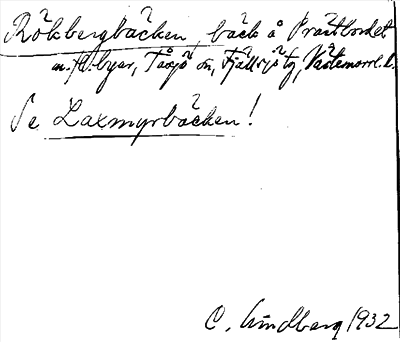 Rökbergbäcken, bäck å Prästbordet
m.fl. byar, Tåsjö sn, Fjällsjö tg, Västernorrl. l.
Se Laxmyrbäcken!
C. Lindberg 1932